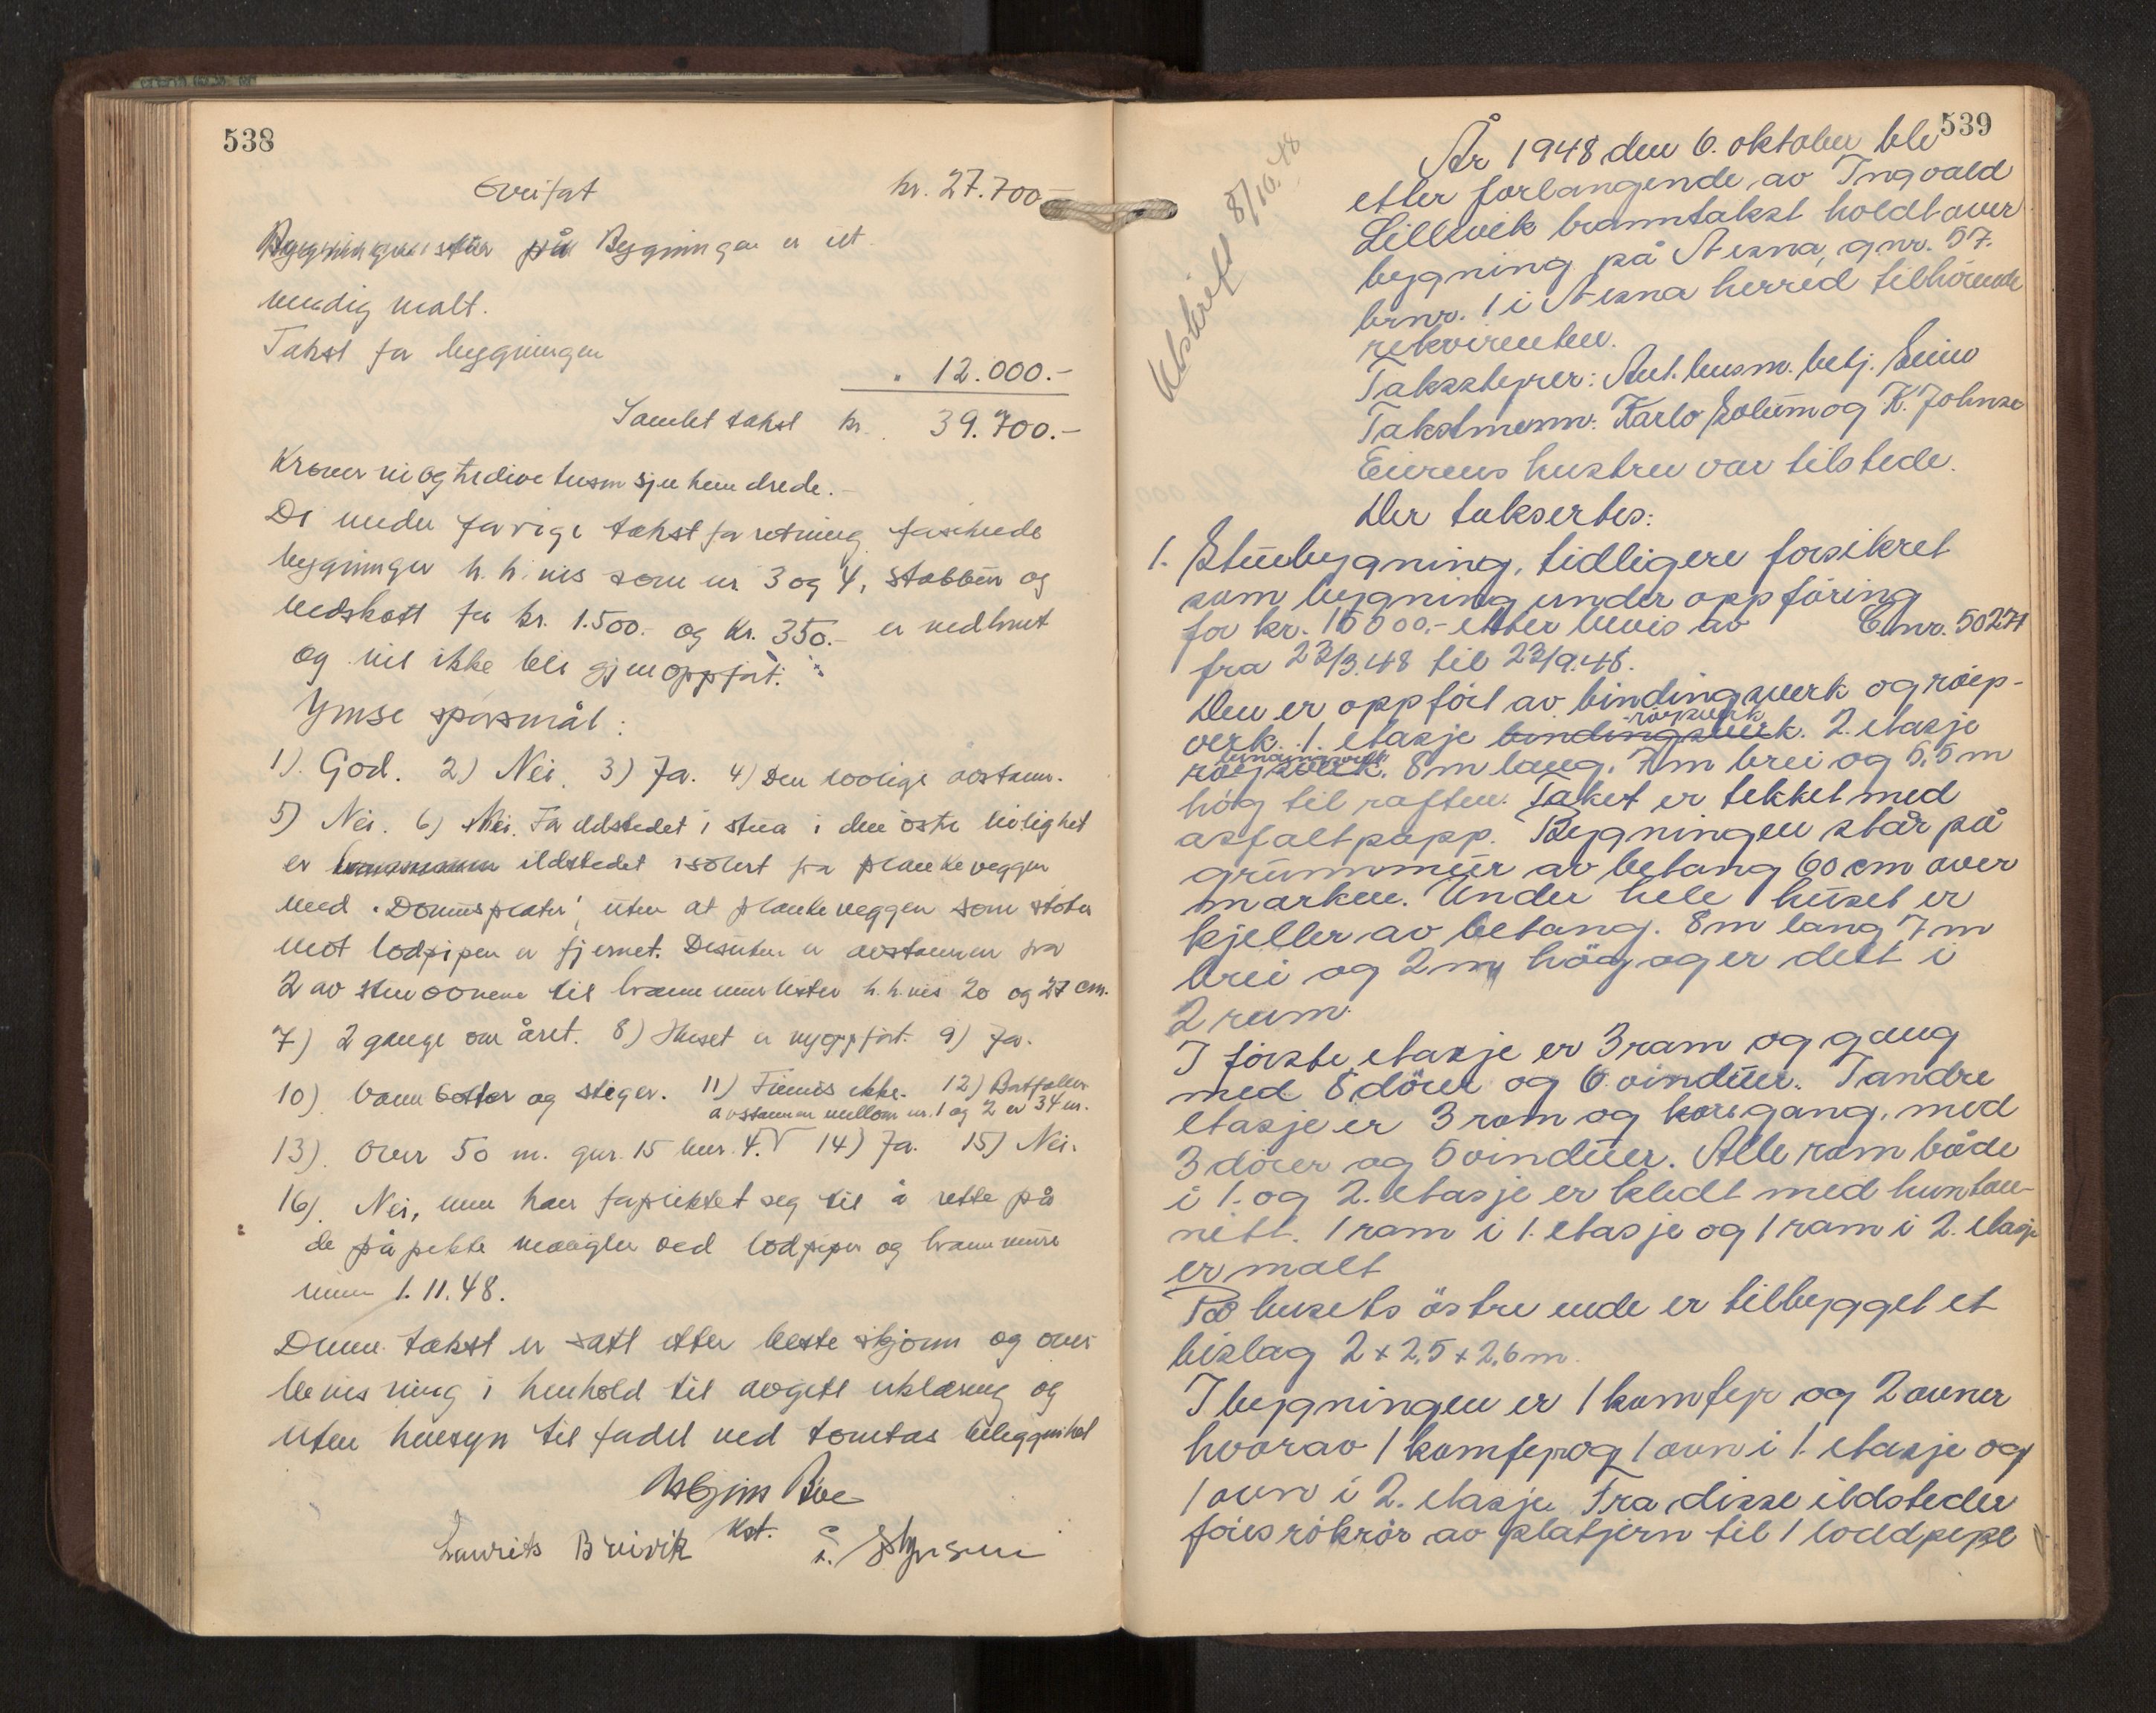 538
Overført kr. 27.700.-
Bygningen er ut
vendig malt.
Takst for bygningen
" 12.000.-
Samlet takst kr. 39.700.-
Kroner niogtredivetusen sjuhundrede.-
De under forrige takstforretning forsikrede
bygninger h.h.vis som nr. 3 og 4, stabbur og
vedskott for kr. 1.500.- og kr. 350.- er nedbrut
og vil ikke bli gjenoppført.
Ymse spørsmål:
1). God. 2) Nei. 3) Ja. 4) Den lovlige avstann.
5) Nei. 6) Nei. For ildstedet i stua i den østre leilighet
er ildstedet isolert fra plankeveggen
med "Donnsplater", uten at plankeveggen som støter
mot lodpipen er fjernet. Desuten er avstannen fra
2 av stuovnene til brannmurlister h.h.vis 20 og 27 cm.
7) 2 gange om året. 8) Huset er nyoppført. 9) Ja.
10) Vann bøtter og stiger. 11) Finnes ikke. 12) Bortfaller.
avstannen mellom nr. 1 og 2 er 34 m.
13). Over 50 m. gnr. 15 bnr. 4. V 14) Ja. 15) Nei.
16). Nei, men har forpliktet seg til å rette på
de påpekte mangler ved lodpiper og brannmure
innen 1.11.48.
Denne takst er satt etter beste skjønn og over
bevisning i henhold til avgitt erklæring og
uten hensyn til fordel ved tomtas beliggenhet
Asbjørn Bøe
kst.
Laurits Breivik
539
Utskrift 8/10.48
År 1948 den 6. oktober ble
etter forlangende av Ingvald
Lillevik branntakst holdt over
bygning på Nesna, gnr. 57.
brnr. 1 i Nesna herred tilhørende
rekvirenten.
Takstbyrer: Aut. lensm. betj. Enino
Takstmenn: Karlo Solum og K. Johnse
Eierens hustru var tilstede.
Der taksertes:
1. Stuebygning, tidligere forsikret
som bygning under oppføring
for kr. 15000,- etter bevis av E nr. 50271
fra 23/3.48 til 23/9.48.
Den er oppført av bindingsverk og reip-
-reipsverk
verk. 1. etasje bindingsverk. 2. etasje
bindingsverk
reipsverk. 8 m lang, 7 m brei og 5,5 m
høg til raften. Taket er tekket med
asfaltpapp. Bygningen står på
grunnmur av betong 60 cm over
marken. Under hele huset er
kjeller av betong. 8 m lang 7 m
brei og 2 m høg og er delt i
2 rum.
I første etasje er 3 rom og gang
med 8 dører og 6 vinduer. I andre
etasje er 3 rom og gang, med
3 dører og 5 vinduer. Alle rom både
i 1. og 2. etasje er kledt med huntou-
nitt. 1 rom i 1. etasje og 1 rom i 2. etasje
er malt
På husets østre ende er tilbygget et
bislag 2 x 2,5 x 2,6 m.
I bygningen er 1 komfyr og 2 ovner
hvorav 1 komfyr og 1 ovn i 1. etasje og
1 ovn i 2. etasje. Fra disse ildsteder
føres rökrör av platjern til 1 loddpipe